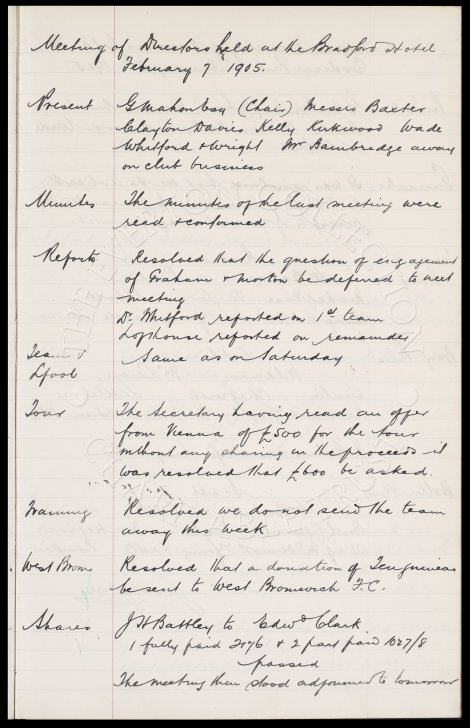 Meeting of Directors held at the Bradford Hotel
February 7 1905.
Present G Mahon Esq (Chair) Messrs Baxter
Clayton Davies Kelly Kirkwood Wade
Whitford & Wright Mr Bainbridge away
on club business
Minutes The minutes of the last meeting were
read & confirmed
Reports Resolved that the question of engagement
of Graham & Morton be deferred to next
meeting
Dr Whitford reported on 1st team
Lofthouse reported on remainder
Team v Same as on Saturday
Lpool
Tour The Secretary having read an offer
from Vienna of £500 for the tour
without any sharing in the proceeds it
was resolved that £600 be asked.
Training Resolved we do not send the team
away this week
West Brom Resolved that a donation of Ten guineas
be sent to West Bromwich F.C.
Shares J H Battley to Edwd Clark
1 fully paid 2176 & 2 part paid 1027/8
passed
The meeting then stood adjourned to tomorrow